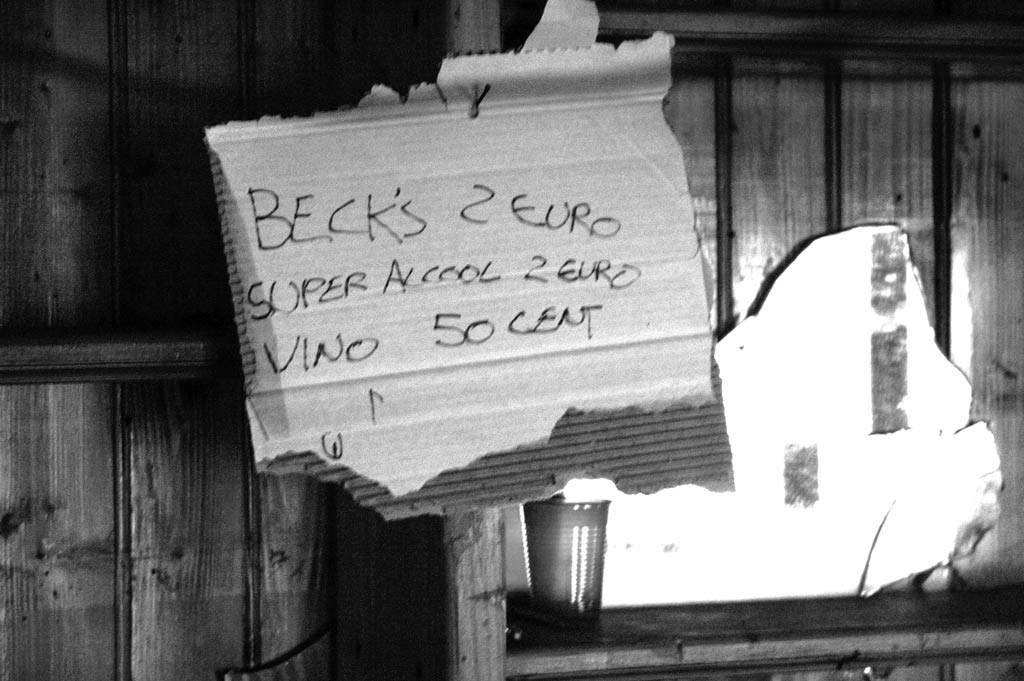 BECK'S 2 EURO
SUPER ALCOOL 2 EURO
VINO 50 CENT